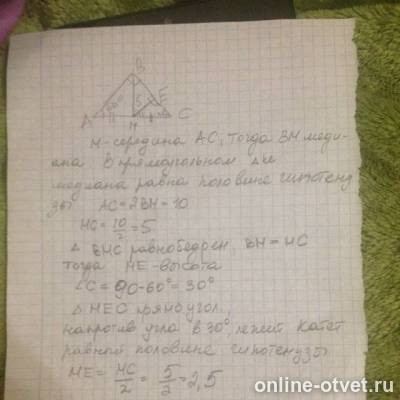 B
60°
5
E
A
M
C
M-середина AC, тогда BM меди-
ана В прямоугольном Δке
медиана равна половине гипотену
зы AC=2BM=10
MC=10/2=5
Δ BMC равнобедрен, BM=MC
тогда ME-высота
∠C=90-60°=30°
Δ MEC прямоугол,
напротив угла в 30° лежит катет
равный половине гипотенузы
ME=MC/2=5/2=2,5
online-otvet.ru